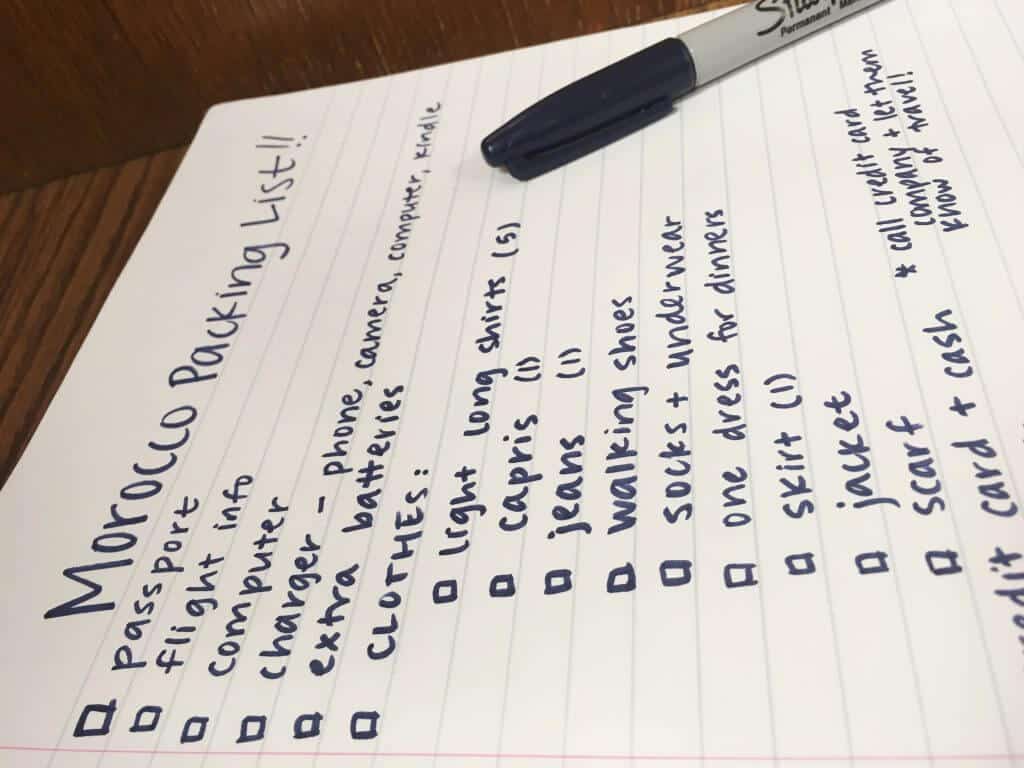 Morocco Packing List!!
passport
flight info
computer
charger - phone, camera, computer, kindle
extra batteries
CLOTHES:
light long shirts (5)
capris (1)
jeans (1)
walking shoes
socks + underwear
one dress for dinners
skirt (1)
jacket
scarf
card + cash
* call credit card
company + let them
know of travel!!
Permanent